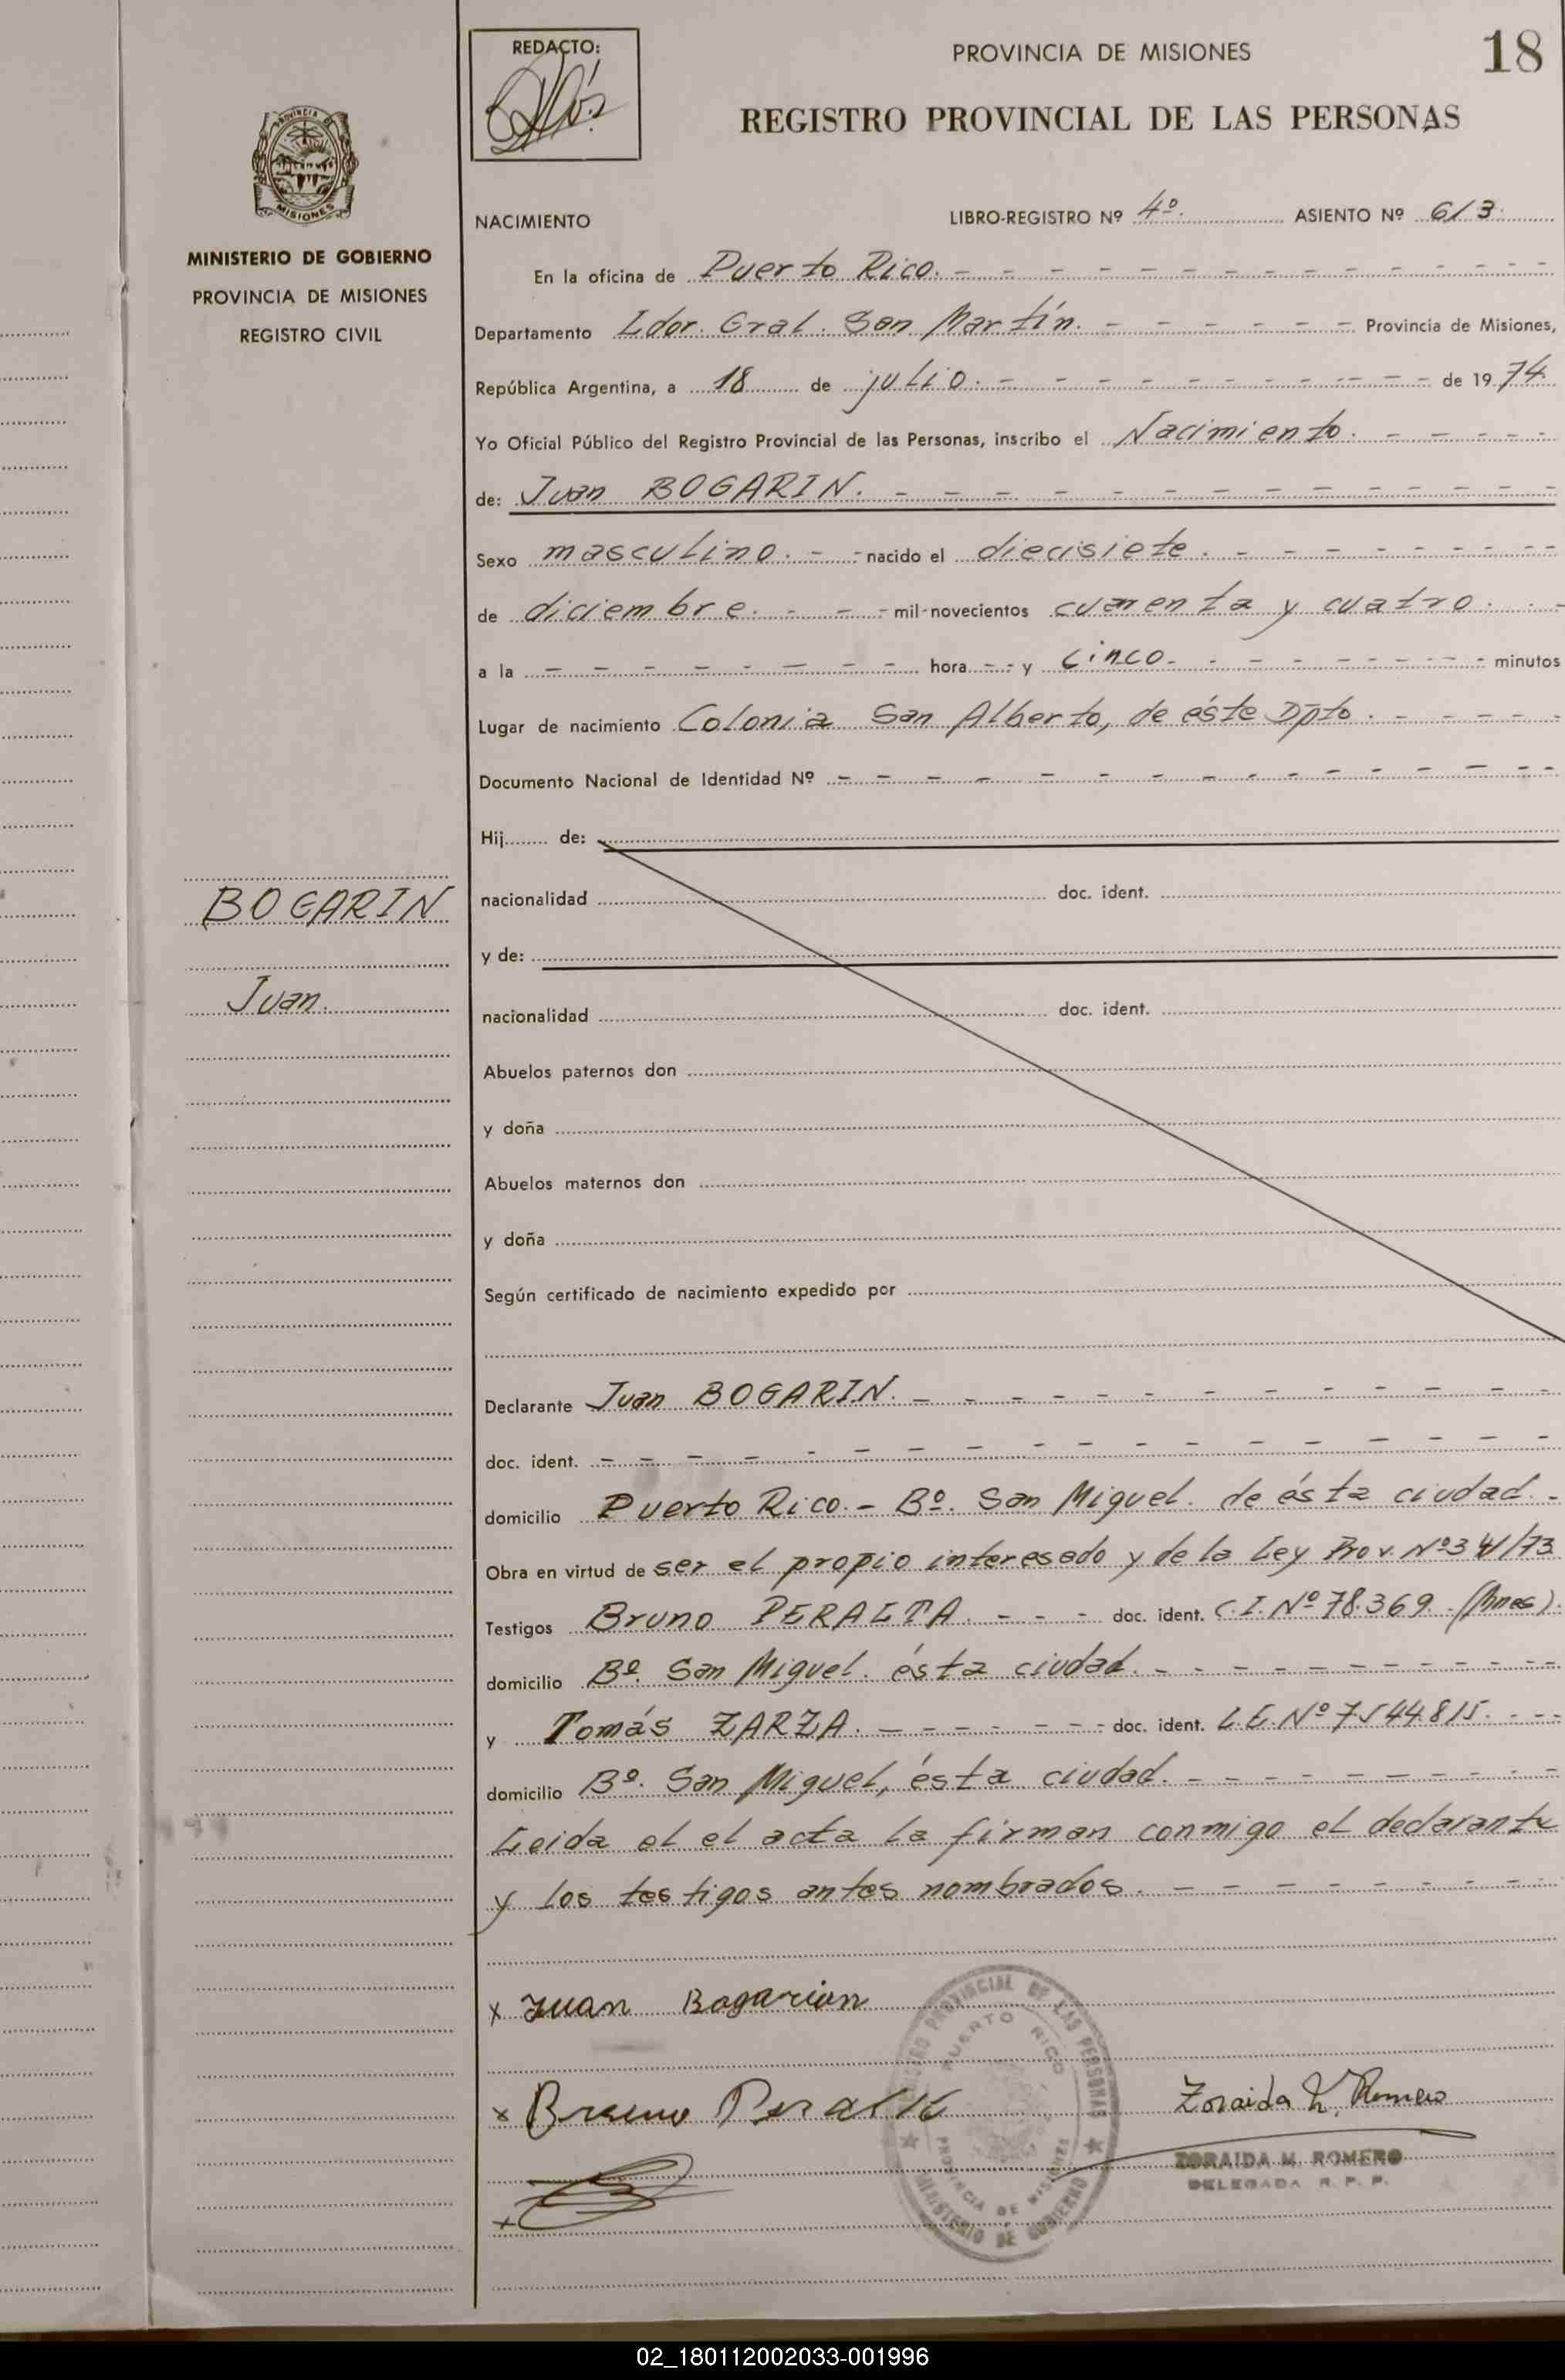 REDACTO:
PROVINCIA DE MISIONES
18
REGISTRO PROVINCIAL DE LAS PERSONAS
MISIONES
MINISTERIO DE GOBIERNO
PROVINCIA DE MISIONES
REGISTRO CIVIL
NACIMIENTO LIBRO-REGISTRO Nº 4º. ASIENTO Nº 613.
En la oficina de Puerto Rico. - - - - - - - - - - - - - -
Departamento Ldor. Gral. San Martín. - - - - - - Provincia de Misiones,
República Argentina, a 18 de julio. - - - - - - - - - - - de 1974.
Yo Oficial Público del Registro Provincial de las Personas, inscribo el Nacimiento. - - - - -
de: Juan BOGARIN. - - - - - - - - - - - - -
Sexo masculino. - - nacido el diecisiete. - - - - - - - -
de diciembre. - - - mil novecientos cuarenta y cuatro. - -
a la - - - - - - - - hora - - y cinco. - - - - - - - - - minutos
Lugar de nacimiento Colonia San Alberto, de éste Dpto. - - - - -
Documento Nacional de Identidad Nº - - - - - - - - - - - - - - - -
Hij........ de:
nacionalidad doc. ident.
y de:
nacionalidad doc. ident.
Abuelos paternos don
y doña
Abuelos maternos don
y doña
Según certificado de nacimiento expedido por
BOGARIN
Juan.
Declarante Juan BOGARIN. - - - - - - - - - - - -
doc. ident. - - - - - - - - - - - - - - - - -
domicilio Puerto Rico. - Bº. San Miguel. de ésta ciudad. -
Obra en virtud de ser el propio interesado y de la Ley Prov. Nº 341/73
Testigos Bruno PERALTA. - - - doc. ident. C.I. Nº 78.369. (Mnes).
domicilio Bº. San Miguel. ésta ciudad. - - - - - - - - - - -
y Tomás ZARZA. - - - - - - - doc. ident. L.E. Nº 7544.815. - - -
domicilio Bº. San Miguel, ésta ciudad. - - - - - - - - - -
Leida el el acta la firman conmigo el declarante
y los testigos antes nombrados. - - - - - - - - - -
x Juan Bogarion
x Bruno Peralta
Zoraida M. Romero
ZORAIDA M. ROMERO
DELEGADA R. P. P.
REGISTRO PROVINCIAL DE LAS PERSONAS
PUERTO RICO
PROVINCIA DE MISIONES
MINISTERIO DE GOBIERNO
x
02_180112002033-001996